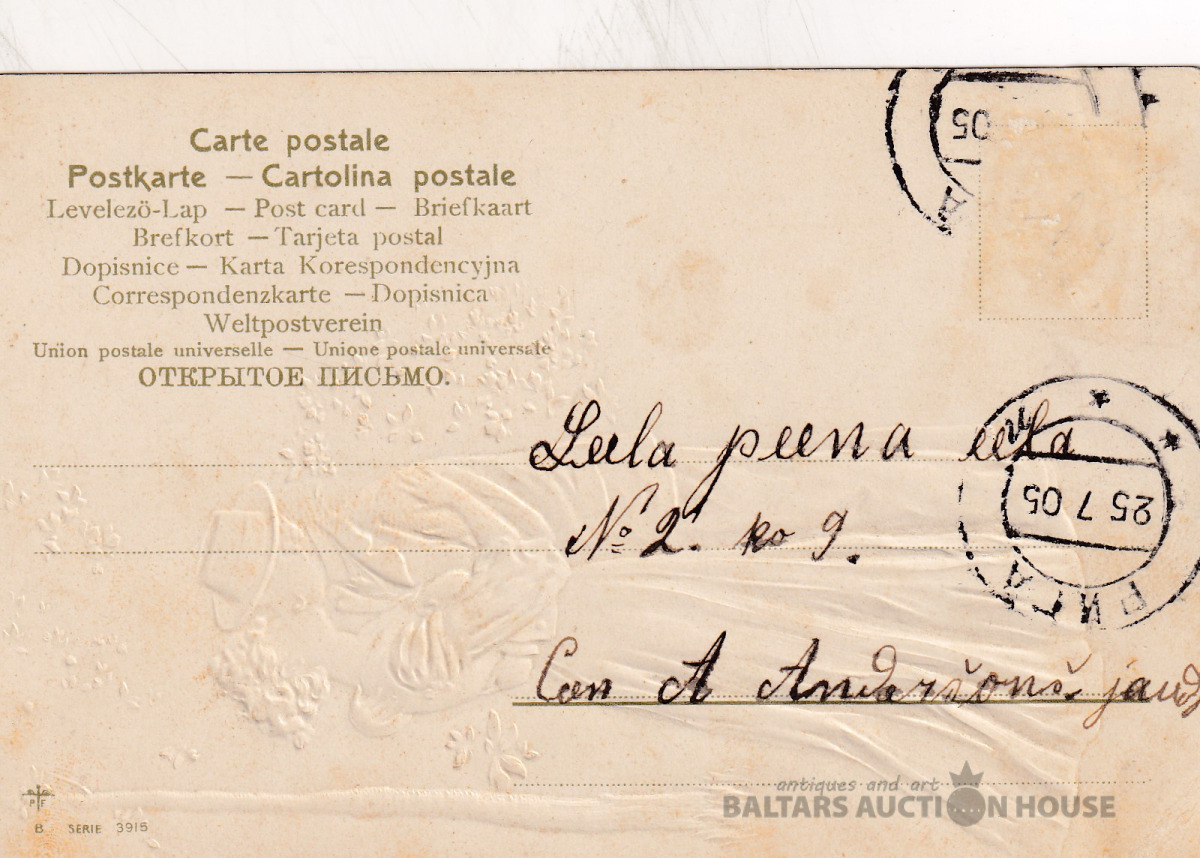 Carte postale
Postkarte — Cartolina postale
Levelezö-Lap — Post card — Briefkaart
Brefkort — Tarjeta postal
Dopisnice — Karta Korespondencyjna
Correspondenzkarte — Dopisnica
Weltpostverein
Union postale universelle — Unione postale universale
ОТКРЫТОЕ ПИСЬМО.
05
А
Leela peena eela
№ 2. ko 9.
A Andersons
25 7 05
РИГА
PF
B SERIE 3915
antiques and art
BALTARS AUCTION HOUSE